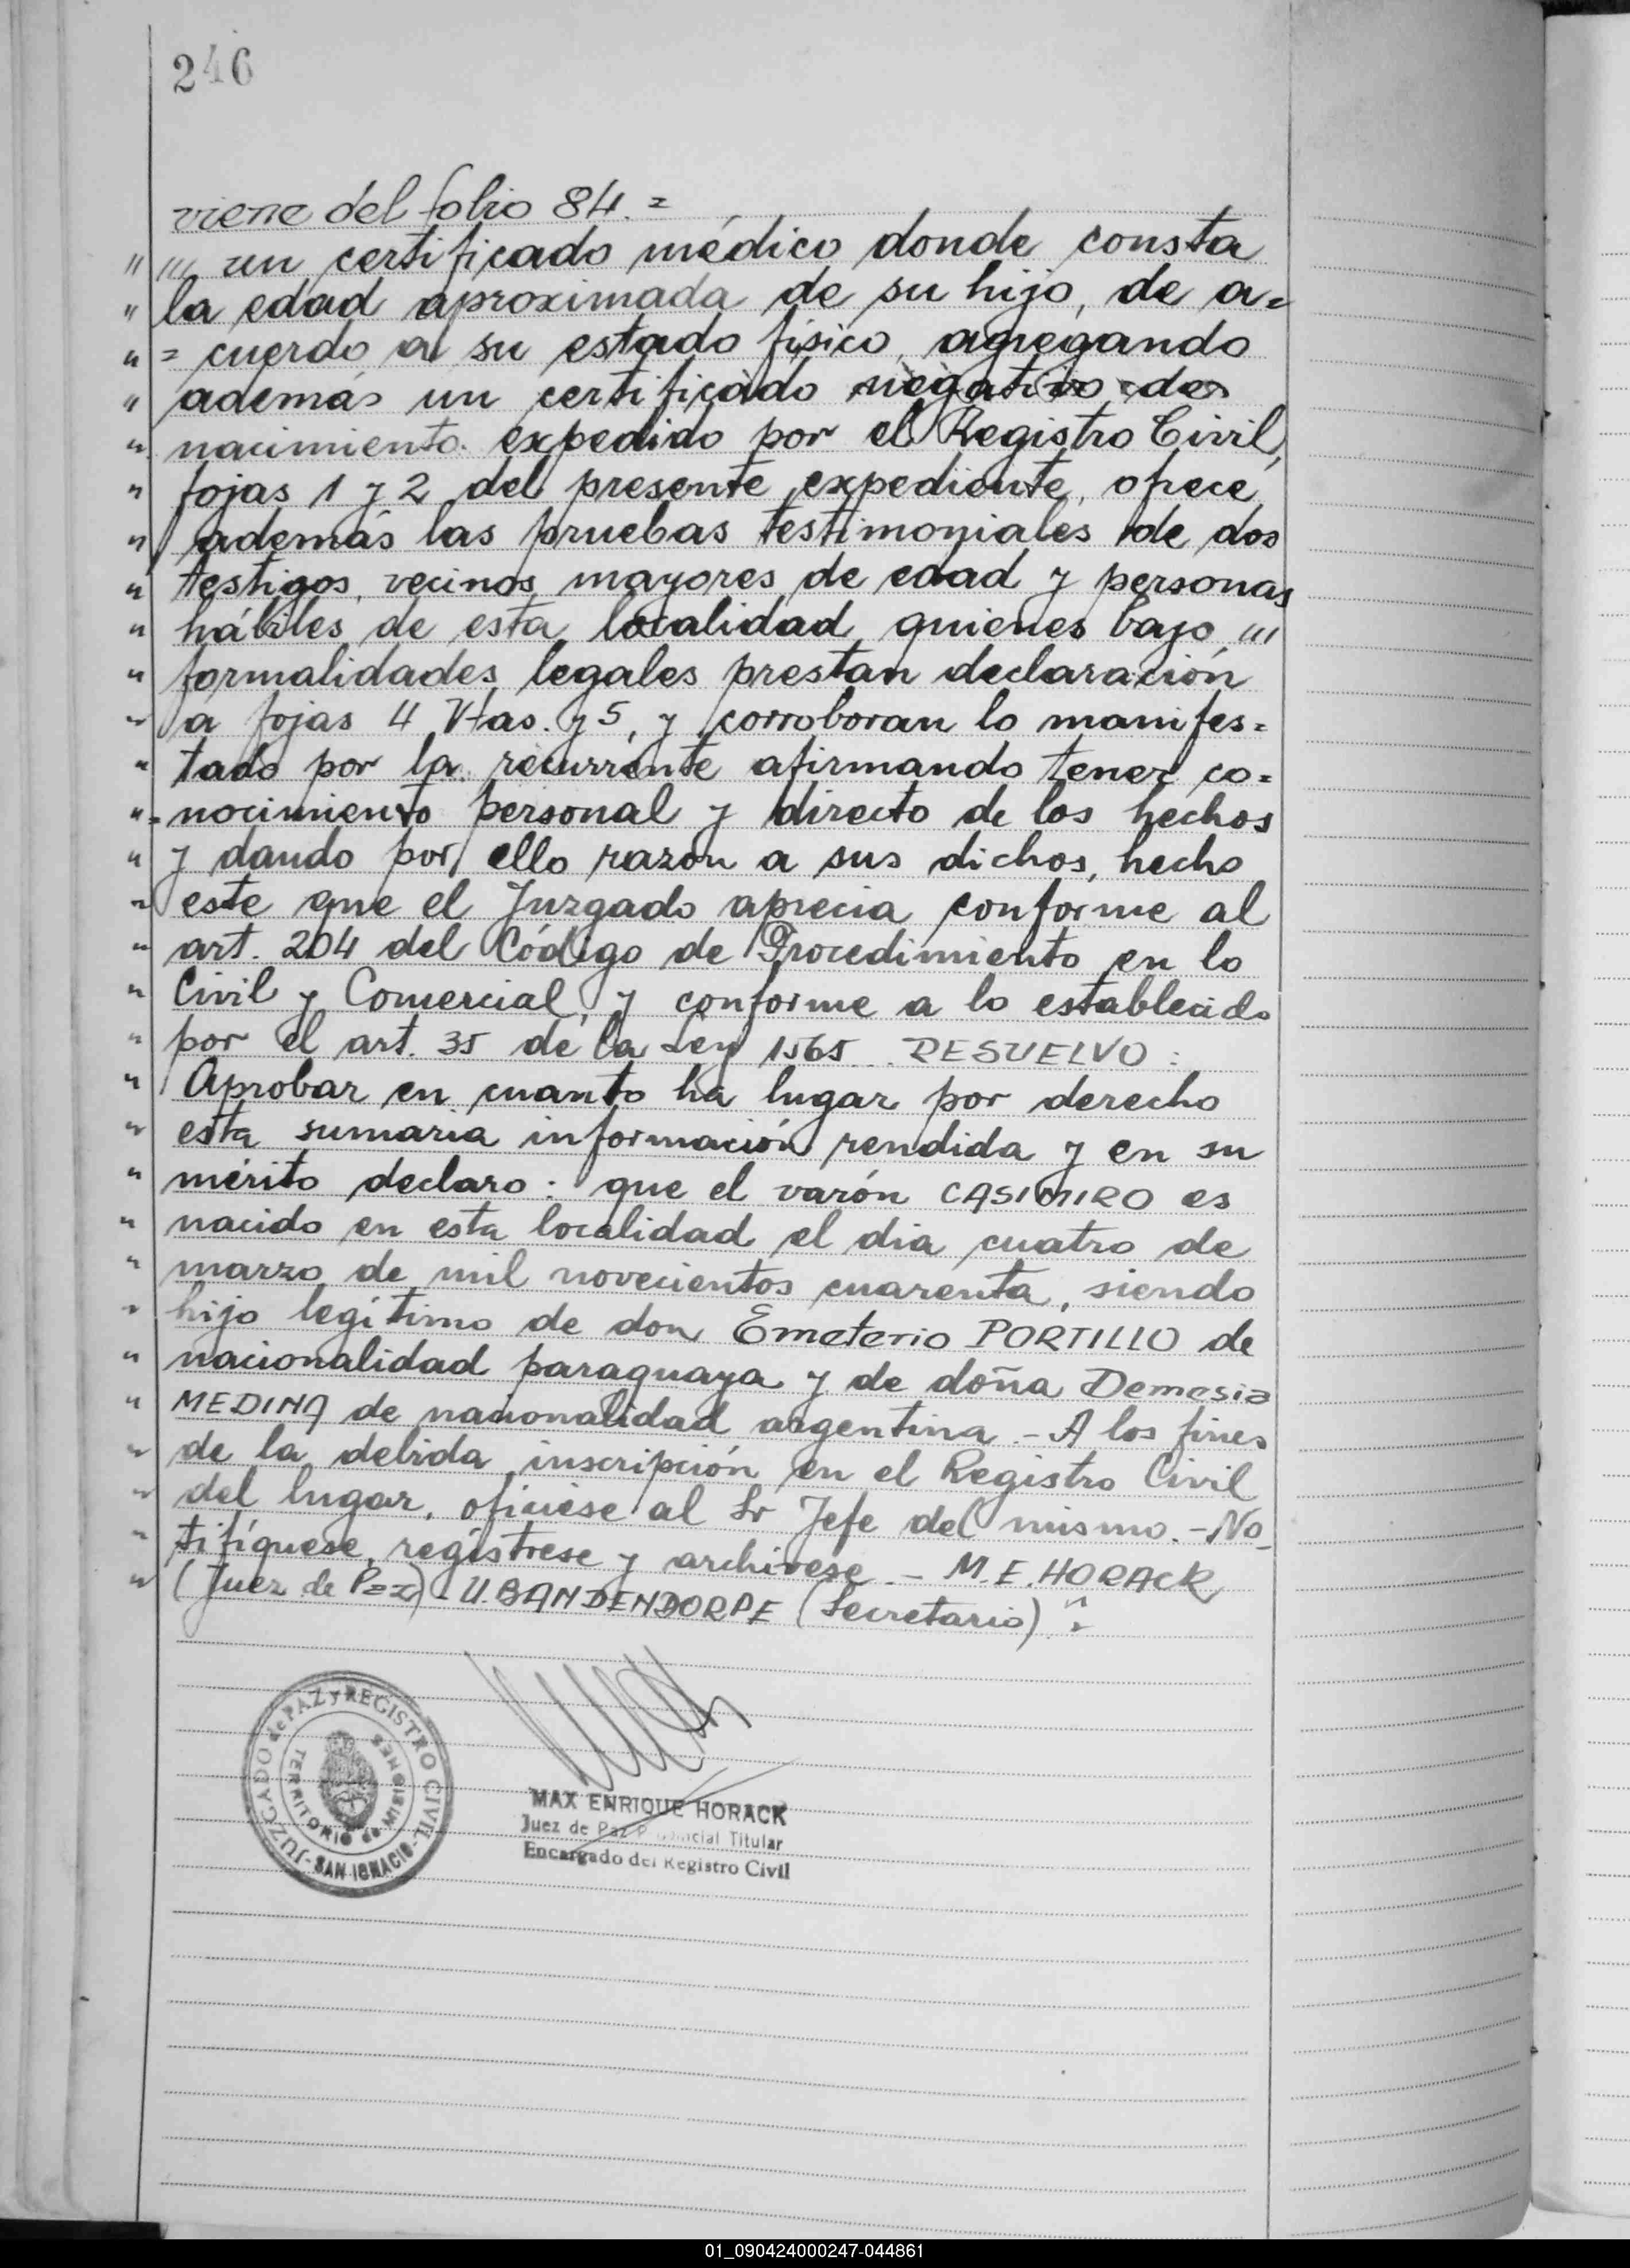 246
viene del folio 84.=
" "' un certificado médico donde consta
" la edad aproximada de su hijo, de a=
" = cuerdo a su estado físico, agregando
" además un certificado negativo de
" nacimiento expedido por el Registro Civil,
" fojas 1 y 2 del presente expediente, ofrece
" además las pruebas testimoniales de dos
" testigos, vecinos mayores de edad y personas
" hábiles de esta localidad, quienes bajo "'
" formalidades legales prestan declaración
" a fojas 4 Vtas. y 5, y corroboran lo manifes=
" tado por la recurrente afirmando tener co=
" =nocimiento personal y directo de los hechos
" y dando por ello razón a sus dichos, hecho
" este que el Juzgado aprecia conforme al
" art. 204 del Código de Procedimiento en lo
" Civil y Comercial, y conforme a lo establecido
" por el art. 35 de la Ley 1565.. RESUELVO:
" Aprobar en cuanto ha lugar por derecho
" esta sumaria información rendida y en su
" mérito declaro: que el varón CASIMIRO es
" nacido en esta localidad el dia cuatro de
" marzo de mil novecientos cuarenta, siendo
" hijo legítimo de don Emeterio PORTILLO de
" nacionalidad paraguaya y de doña Demesia
" MEDINA de nacionalidad argentina.- A los fines
" de la debida inscripción en el Registro Civil
" del lugar, ofíciese al Sr Jefe del mismo.- No_
" tifíquese, regístrese y archívese.- M.E. HORACK
" (Juez de Paz)- U. BANDENDORPE (Secretario)".=
JUZGADO de PAZ y REGISTRO CIVIL
TERRITORIO de MISIONES
-SAN IGNACIO-
MAX ENRIQUE HORACK
Juez de Paz Provincial Titular
Encargado del Registro Civil
01_090424000247-044861